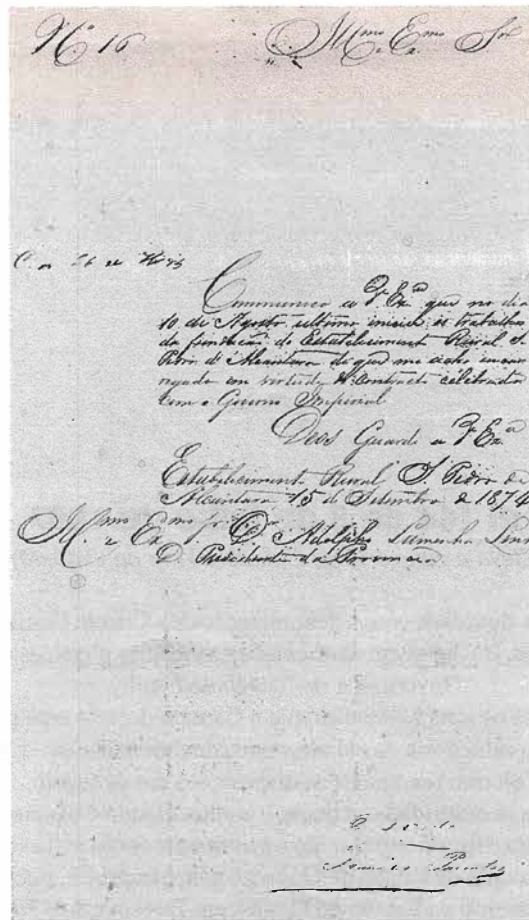 N.º 16
Illmo e Exmo Snr
Communico a V. Exª que no dia
10 de Agosto ultimo iniciei os trabalhos
da fundação do Estabeleciment Rural S.
Pedro d' Alcantara de que me acho encar
regado em virtude do Contracto celebrado
com o Governo Imperial
Deos Guarde a V. Exª
Estabeleciment Rural S. Pedro de
Alcantara 15 de Setembro de 1874
Illmo e Exmo Snr D. Adolpho Lamenha Lins
D. Presidente da Provincia